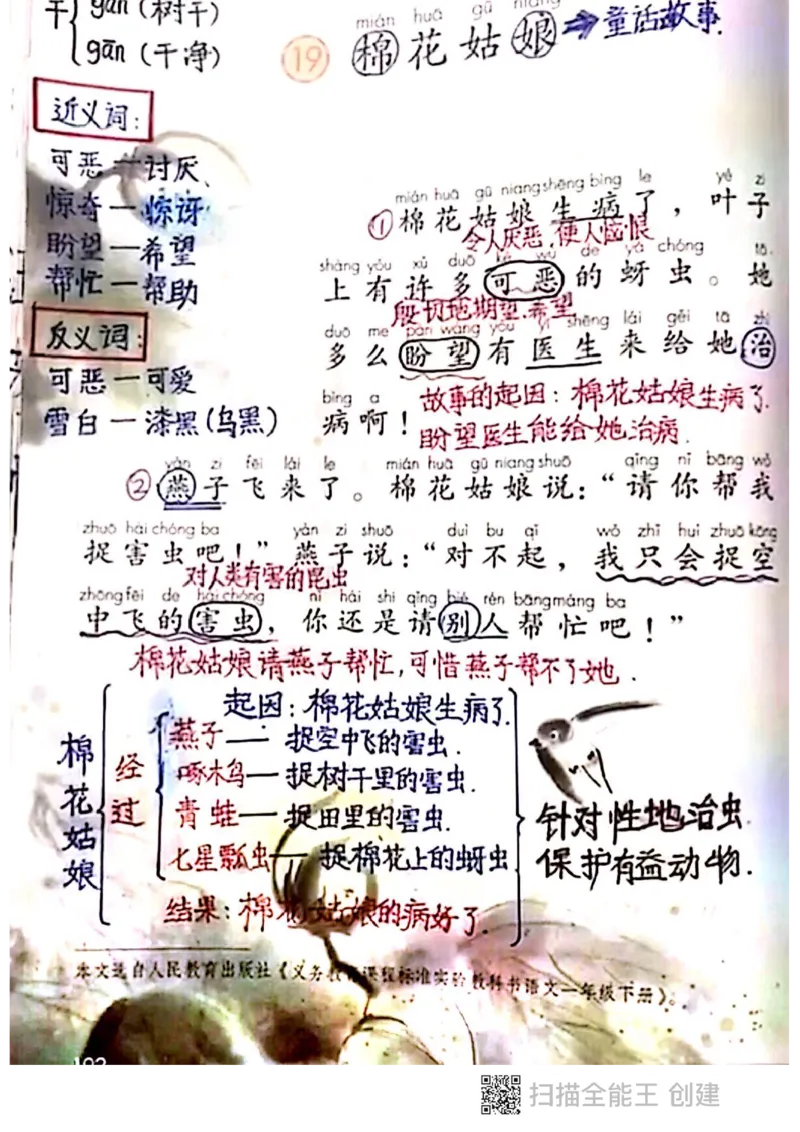 干 gàn（树干）
gān（干净）
mián huā gū niang
19 棉花姑娘 ⇒ 童话故事.
近义词：
可恶—讨厌、
惊奇—惊讶
盼望—希望
帮忙—帮助
反义词：
可恶—可爱
雪白—漆黑（乌黑）
mián huā gū niang shēng bìng le yè zi
①棉花姑娘生病了，叶子
令人厌恶.使人恼恨
shàng yǒu xǔ duō kě wù de yá chóng tā
上有许多可恶的蚜虫。她
殷切地期望.希望
duō me pàn wàng yǒu yī shēng lái gěi tā zhì
多么盼望有医生来给她治
bìng a
病啊！
故事的起因：棉花姑娘生病了.
盼望医生能给她治病.
yàn zi fēi lái le mián huā gū niang shuō qǐng nǐ bāng wǒ
②燕子飞来了。棉花姑娘说：“请你帮我
zhuō hài chóng ba yàn zi shuō duì bu qǐ wǒ zhǐ huì zhuō kōng
捉害虫吧！”燕子说：“对不起，我只会捉空
对人类有害的昆虫
zhōng fēi de hài chóng nǐ hái shi qǐng bié rén bāng máng ba
中飞的害虫，你还是请别人帮忙吧！”
棉花姑娘请燕子帮忙,可惜燕子帮不了她.
棉花姑娘
起因：棉花姑娘生病了.
经过
燕子—捉空中飞的害虫.
啄木鸟—捉树干里的害虫.
青蛙—捉田里的害虫.
七星瓢虫—捉棉花上的蚜虫
结果：棉花姑娘的病好了.
针对性地治虫
保护有益动物.
本文选自人民教育出版社《义务教育课程标准实验教科书语文一年级下册》。
扫描全能王 创建